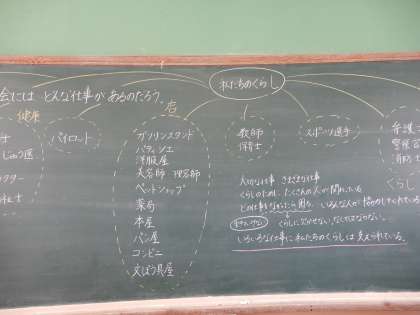 会には どんな仕事が あるのだろう。
私たちのくらし
健康
店
パイロット
ガソリンスタンド
パティシエ
洋服屋
美容師 理容師
ペットショップ
薬局
本屋
パン屋
コンビニ
文ぼう具屋
教師
保育士
スポーツ選手
弁護
警察官
消防
大切な仕事 さまざまな仕事
くらしのために、たくさんの人が働いている
どの仕事もなかったら困る。
くらしに欠かせない、なくてはならない。
いろいろな仕事に私たちのくらしは支えられている。